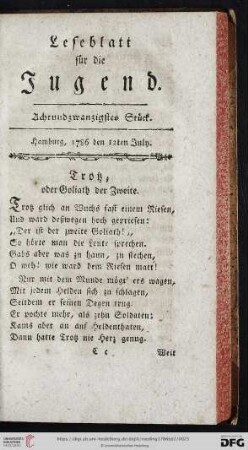 Leseblatt
für die
Jugend.
Achtundzwanzigstes Stück.
Hamburg, 1786 den 12ten July.
Trotz,
oder Goliath der Zweite.
Trotz glich an Wuchs fast einem Riesen,
Und ward deßwegen hoch gepriesen:
„Der ist der zweite Goliath!„
So hörte man die Leute sprechen.
Gabs aber was zu haun, zu stechen,
O weh! wie ward dem Riesen matt!
Nur mit dem Munde mögt' ers wagen,
Mit jedem Helden sich zu schlagen,
Seitdem er seinen Degen trug.
Er pochte mehr, als zehn Soldaten:
Kams aber an auf Heldenthaten,
Dann hatte Trotz nie Herz genug.
E e Weit
DFG